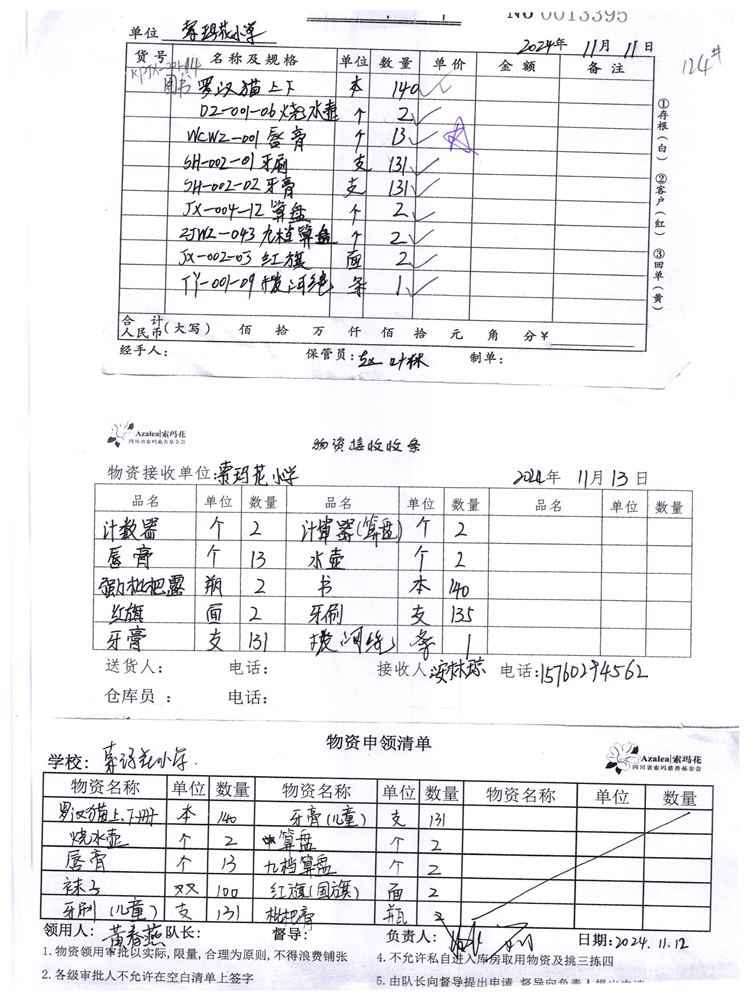 No 0013395
单位 索玛花小学 2024年 11月 11日
124#
货号 名称及规格 单位 数量 单价 金额 备注
图书 罗汉猫上下 本 140
DZ-001-06烧水壶 个 2
WCWZ-001 唇膏 个 13
SH-002-01牙刷 支 131
SH-002-02牙膏 支 131
JX-004-12 算盘 个 2
ZJWZ-043九档算盘 个 2
JX-002-03 红旗 面 2
TY-001-09拔河绳 条 1
合计人民币(大写) 佰 拾 万 仟 佰 拾 元 角 分¥
经手人: 保管员: 制单:
①存根(白) ②客户(红) ③回单(黄)
Azalea|索玛花
四川省索玛慈善基金会
物资接收收条
物资接收单位:索玛花小学 2024年 11月 13日
品名 单位 数量 品名 单位 数量 品名 单位 数量
计数器 个 2 计算器(算盘) 个 2
唇膏 个 13 水壶 个 2
强力枇杷露 瓶 2 书 本 140
红旗 面 2 牙刷 支 135
牙膏 支 131 拔河绳 条 1
送货人: 电话: 接收人: 电话:15760294562
仓库员: 电话:
物资申领清单
Azalea|索玛花
四川省索玛慈善基金会
学校: 索玛花小学
物资名称 单位 数量 物资名称 单位 数量 物资名称 单位 数量
罗汉猫上、下册 本 140 牙膏(儿童) 支 131
烧水壶 个 2 算盘 个 2
唇膏 个 13 九档算盘 个 2
袜子 双 100 红旗(国旗) 面 2
牙刷(儿童) 支 131 枇杷膏 瓶 2
领用人: 黄春燕 队长: 督导: 负责人: 日期:2024.11.12
1.物资领用审批以实际,限量,合理为原则,不得浪费铺张 4.不允许私自进入库房取用物资及挑三拣四
2.各级审批人不允许在空白清单上签字 5.由队长向督导提出申请,督导向负责人提出申请